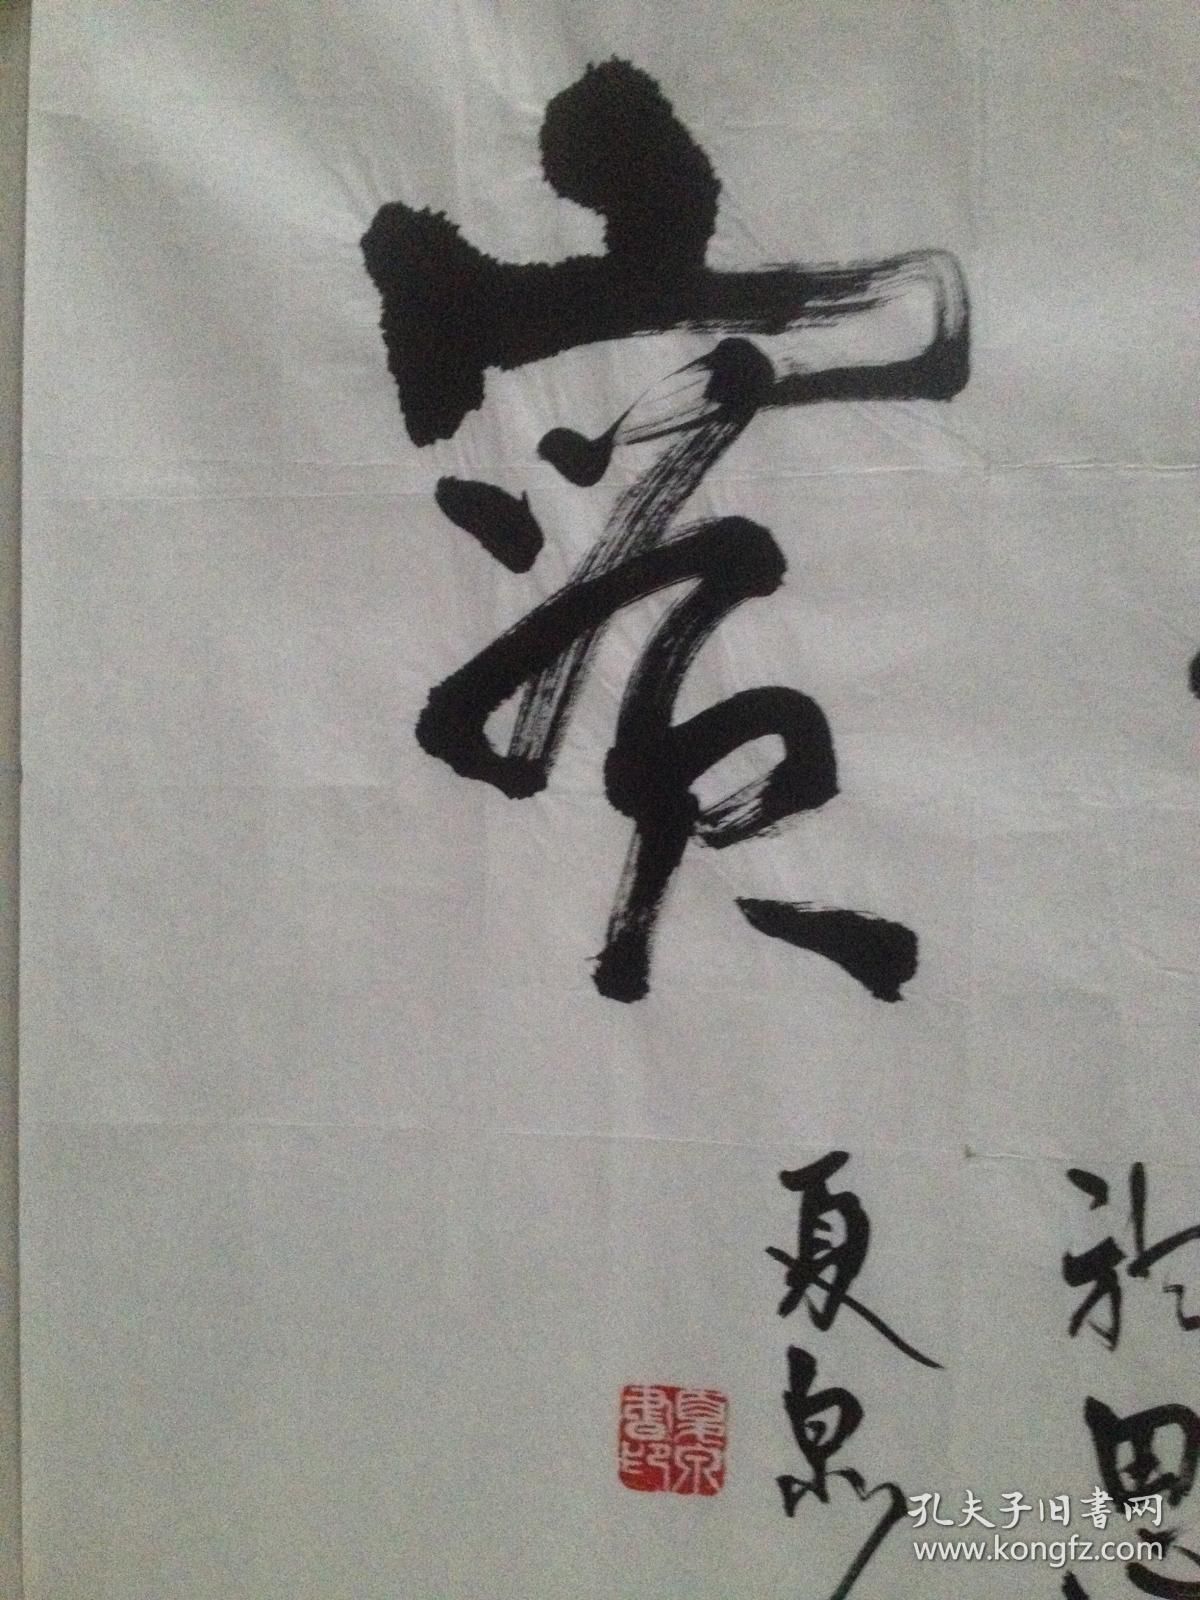 於思
夏泉
夏泉
書印
孔夫子旧书网
www.kongfz.com